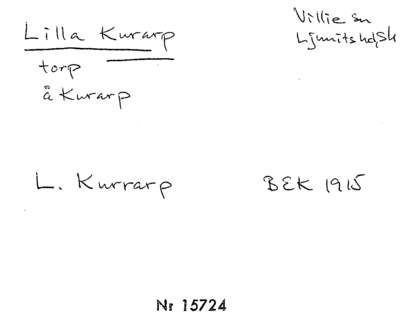 Lilla Kurarp
Villie sn
Ljunits hd, Sk
torp
å Kurarp
L. Kurrarp
BEK 1915
Nr 15724